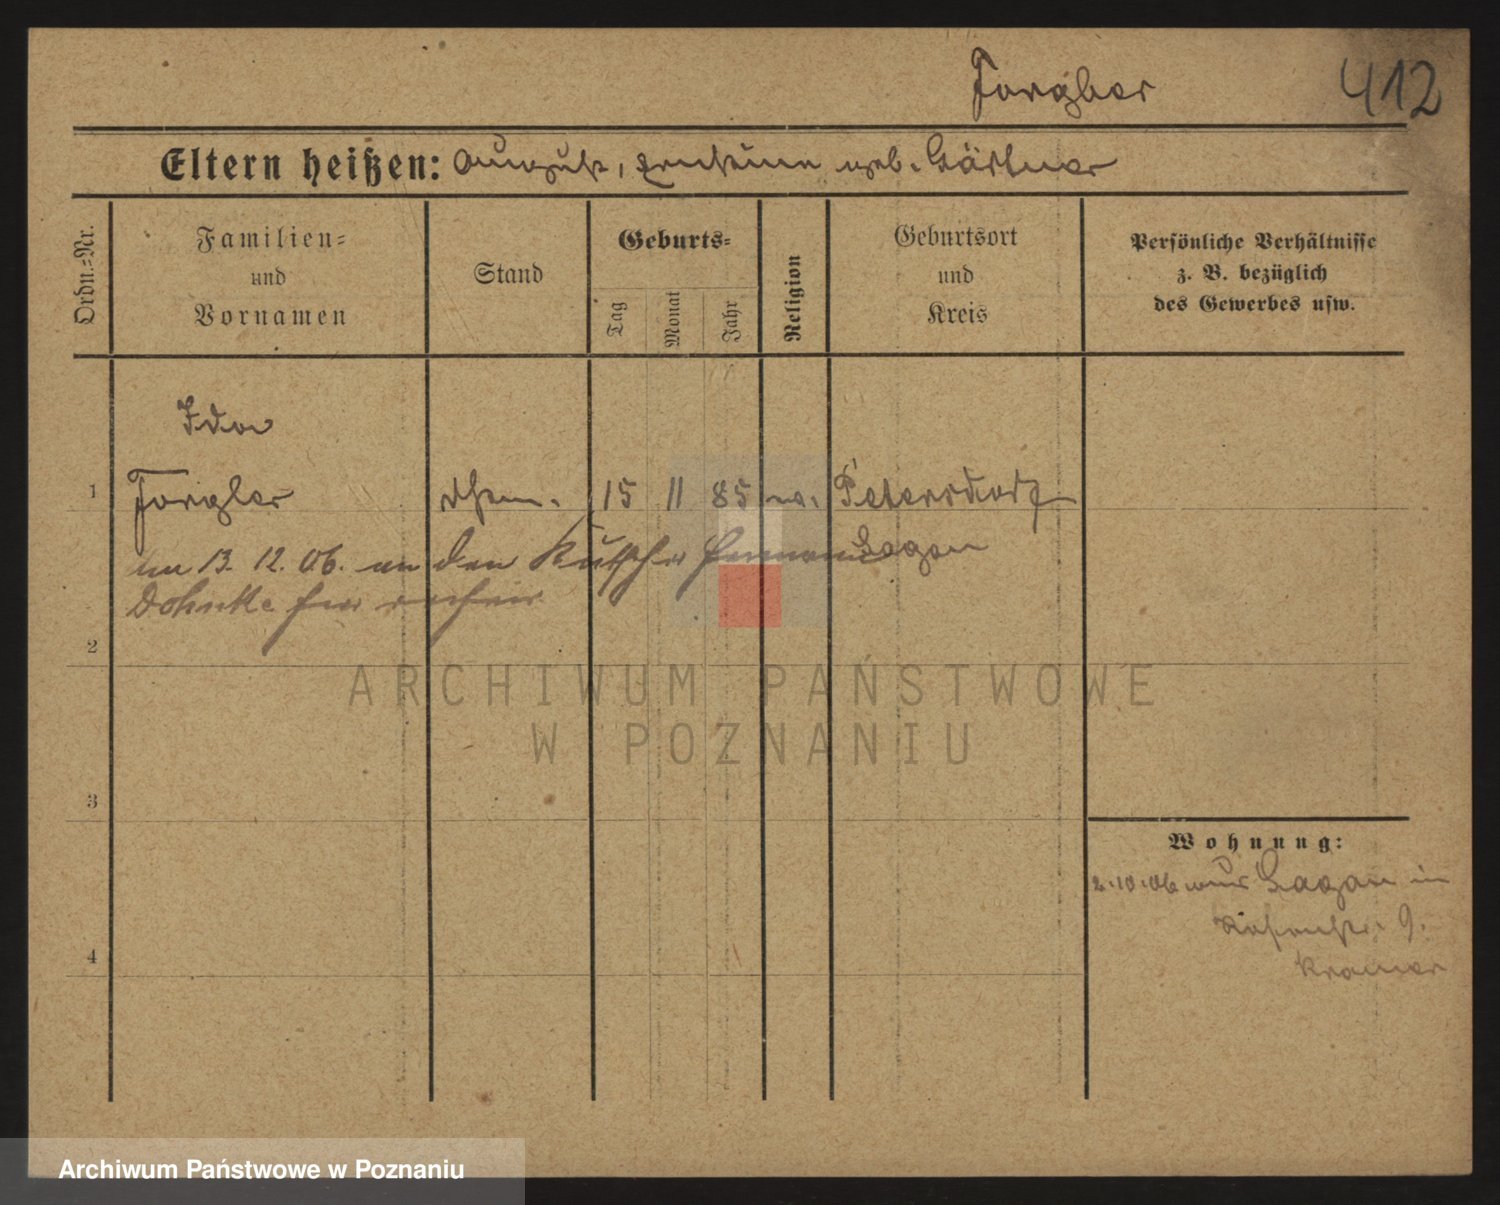 Forgber
412
Eltern heißen: August, Ernstine geb. Gärtner
Ordn.-Nr.
Familien-
und
Vornamen
Stand
Geburts-
Tag
Monat
Jahr
Religion
Geburtsort
und
Kreis
Persönliche Verhältnisse
z. B. bezüglich
des Gewerbes usw.
Ida
1 Forgber 15 11 85 ev. Petersdorf
Am 13. 12. 06. an den Kutscher Hermann Sagan
Dohnke
2
3
4
Wohnung:
2.10.06 Sagan in
9.
Kramer
ARCHIWUM PAŃSTWOWE
W POZNANIU
Archiwum Państwowe w Poznaniu